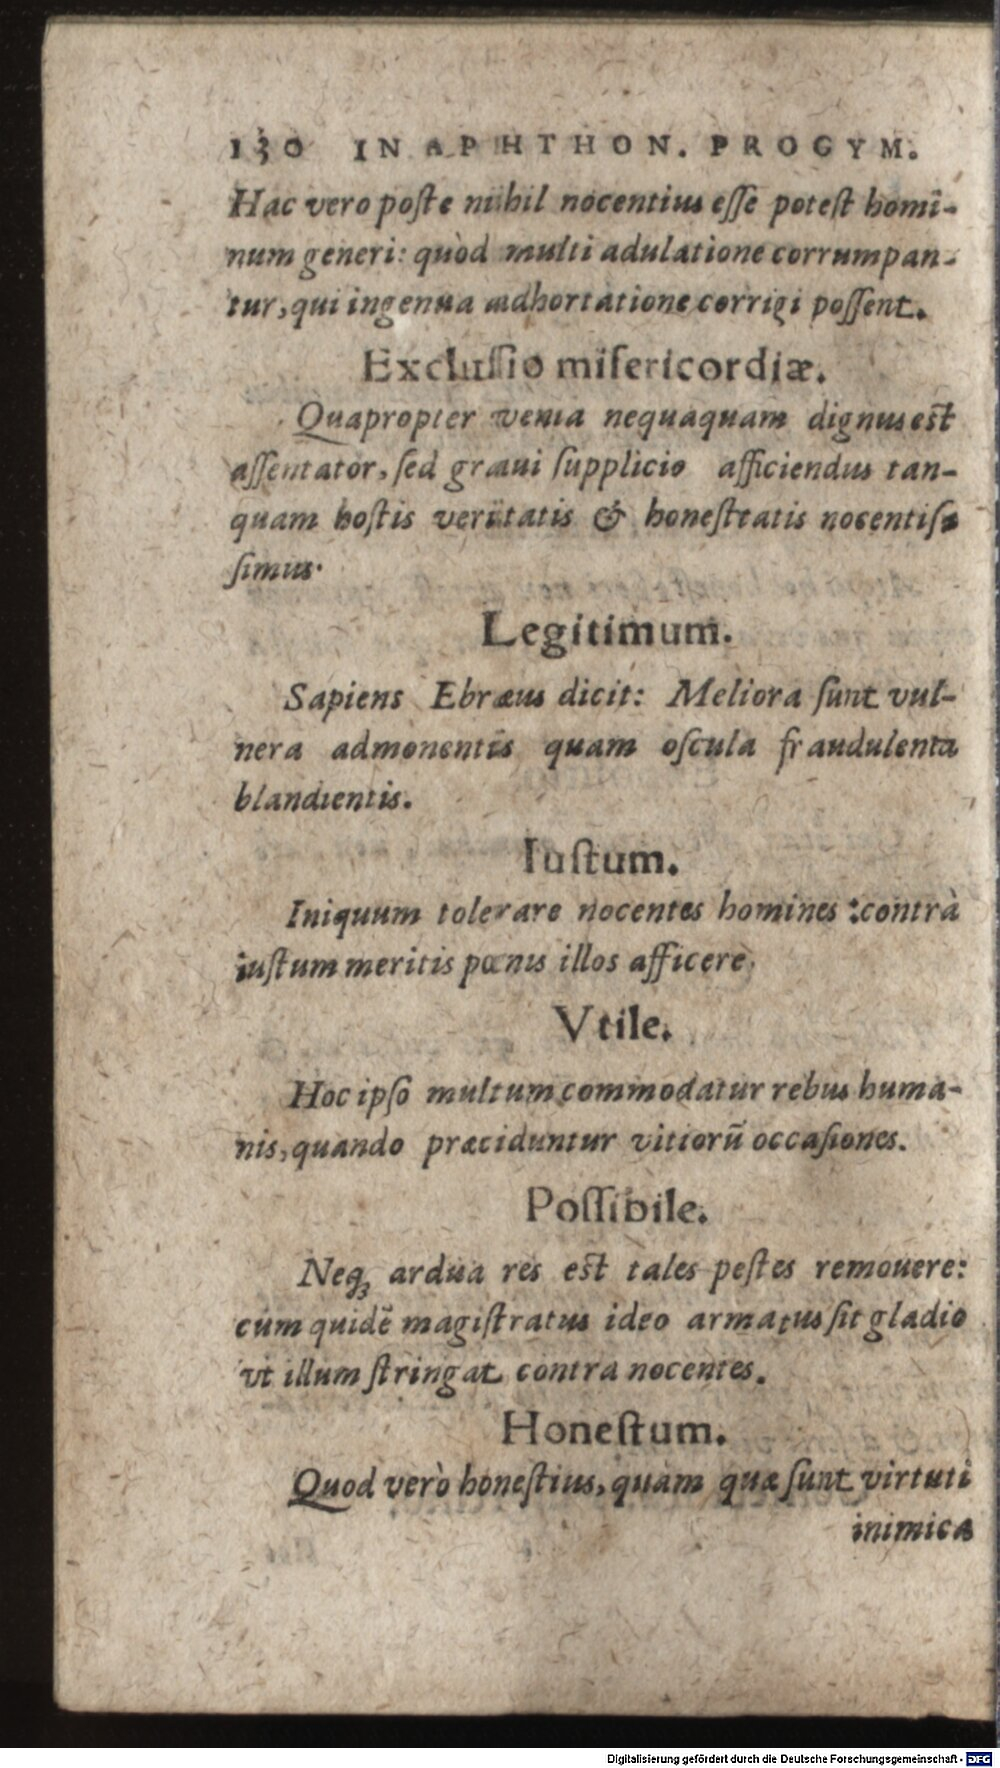 130 IN APHTHON. PROGYM.
Hac vero poste nihil nocentius eſſe poteſt homi-
num generi: quòd multi adulatione corrumpan-
tur, qui ingenua adhortatione corrigi poſſent.
Excluſſio miſericordiæ.
Quapropter venia nequaquam dignus eſt
aſſentator, ſed graui ſupplicio afficiendus tan-
quam hoſtis veritatis & honeſtatis nocentiſ-
ſimus.
Legitimum.
Sapiens Ebræus dicit: Meliora ſunt vul-
nera admonentis quam oſcula fraudulenta
blandientis.
Iuſtum.
Iniquum tolerare nocentes homines: contrà
iuſtum meritis pœnis illos afficere.
Vtile.
Hoc ipſo multum commodatur rebus huma-
nis, quando præciduntur vitiorũ occaſiones.
Poſſibile.
Neqꝫ ardua res eſt tales peſtes remouere:
cùm quidẽ magiſtratus ideo armatus ſit gladio
vt illum ſtringat contra nocentes.
Honeſtum.
Quod verò honeſtius, quàm quæ ſunt virtuti
inimica
Digitalisierung gefördert durch die Deutsche Forschungsgemeinschaft - DFG